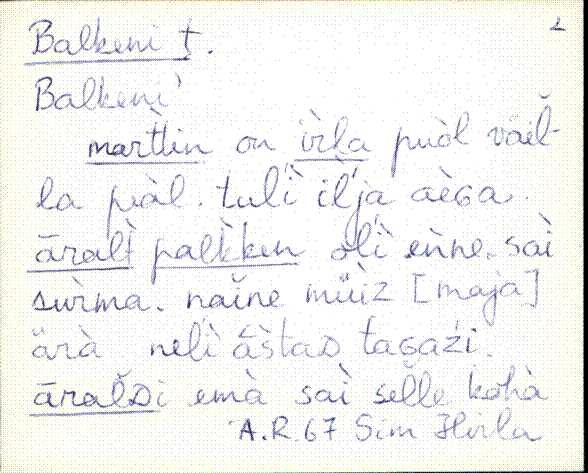 Balkeni t.
Balkeni
marťtin on ìrka puòl väil-
la piàl. tulì ilja aèɢa.
āralt palkken olì enne. sai
surma. naine müìz [maja]
ärà nelì āstaᴅ taɢazi.
āralᴅi emà sai selle kohà
A.R. 67 Sim